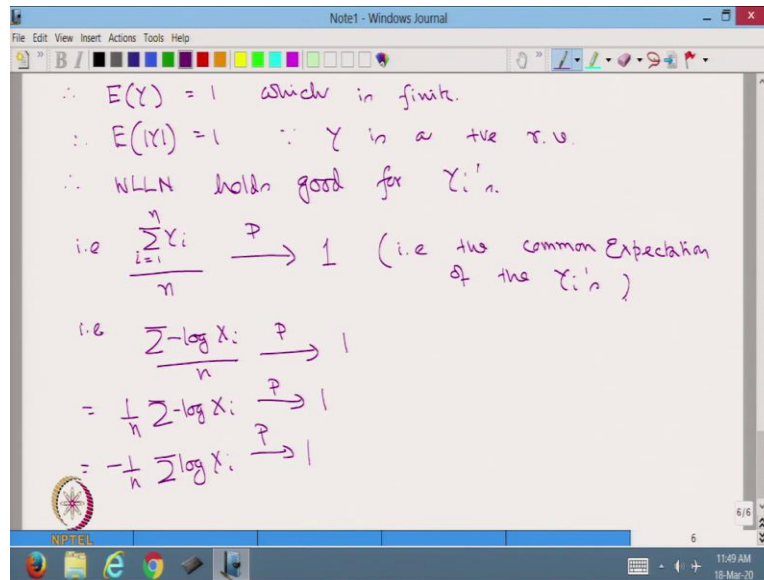 Note1 - Windows Journal
File Edit View Insert Actions Tools Help
∴ E(Y) = 1 which is finite.
∴ E(|Y|) = 1 ∵ Y is a +ve r.v.
∴ WLLN holds good for Yi's.
i.e \frac{\sum_{i=1}^{n} Y_i}{n} \xrightarrow{P} 1 (i.e the common Expectation
of the Yi's)
i.e \frac{\sum -log X_i}{n} \xrightarrow{P} 1
= \frac{1}{n} \sum -log X_i \xrightarrow{P} 1
= -\frac{1}{n} \sum log X_i \xrightarrow{P} 1
6/6
NPTEL
6
11:49 AM
18-Mar-20